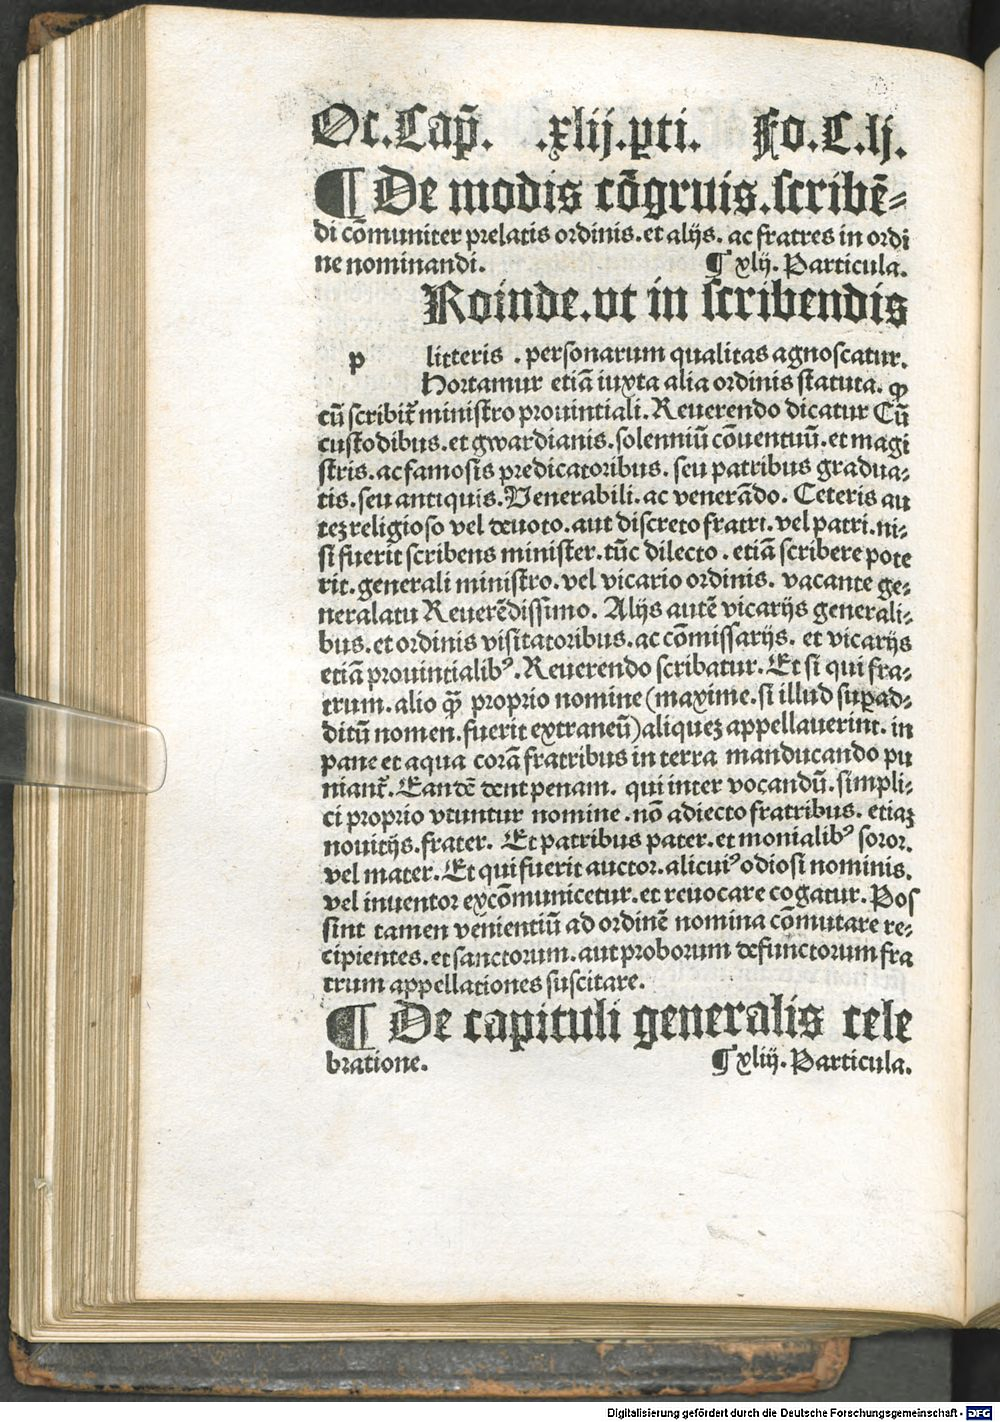 Oc.Cap̄. .xlij.ꝑti. Fo.C.lj.
¶ De modis cōgruis.scribē⸗
di cōmuniter prelatis ordinis.et alijs. ac fratres in ordi
ne nominandi. ¶ xlij. Particula.
Roinde.vt in scribendis
p litteris . personarum qualitas agnoscatur.
Hortamur etiā iuxta alia ordinis statuta. ꝙ
cū scribit᷑ ministro prouintiali. Reuerendo dicatur Cū
custodibus.et gwardianis.solenniū cōuentuū.et magi
stris.ac famosis predicatoribus. seu patribus gradua⸗
tis.seu antiquis.Venerabili.ac venerādo. Ceteris au
teꝫ religioso vel deuoto.aut discreto fratri.vel patri.ni⸗
si fuerit scribens minister.tūc dilecto . etiā scribere pote
rit.generali ministro.vel vicario ordinis. vacante ge⸗
neralatu Reuerēdissimo. Alijs autē vicarijs generali⸗
bus.et ordinis visitatoribus.ac cōmissarijs. et vicarijs
etiā prouintialibꝰ.Reuerendo scribatur.Et si qui fra⸗
trum.alio ꝙ̄ proprio nomine (maxime.si illud suꝑad⸗
ditū nomen.fuerit extraneū) aliqueꝫ appellauerint. in
pane et aqua corā fratribus in terra manducando pu
niant᷑.Eandē dent penam. qui inter vocandū.simpli⸗
ci proprio vtuntur nomine.nō adiecto fratribus. etiaꝫ
nouitijs.frater. Et patribus pater.et monialibꝰ soror.
vel mater.Et qui fuerit auctor.alicuiꝰ odiosi nominis.
vel inuentor excōmunicetur.et reuocare cogatur.Pos
sint tamen venientiū ad ordinē nomina cōmutare re⸗
cipientes.et sanctorum.aut proborum defunctorum fra
trum appellationes suscitare.
¶ De capituli generalis cele
bratione. ¶ xliij. Particula.
Digitalisierung gefördert durch die Deutsche Forschungsgemeinschaft - DFG